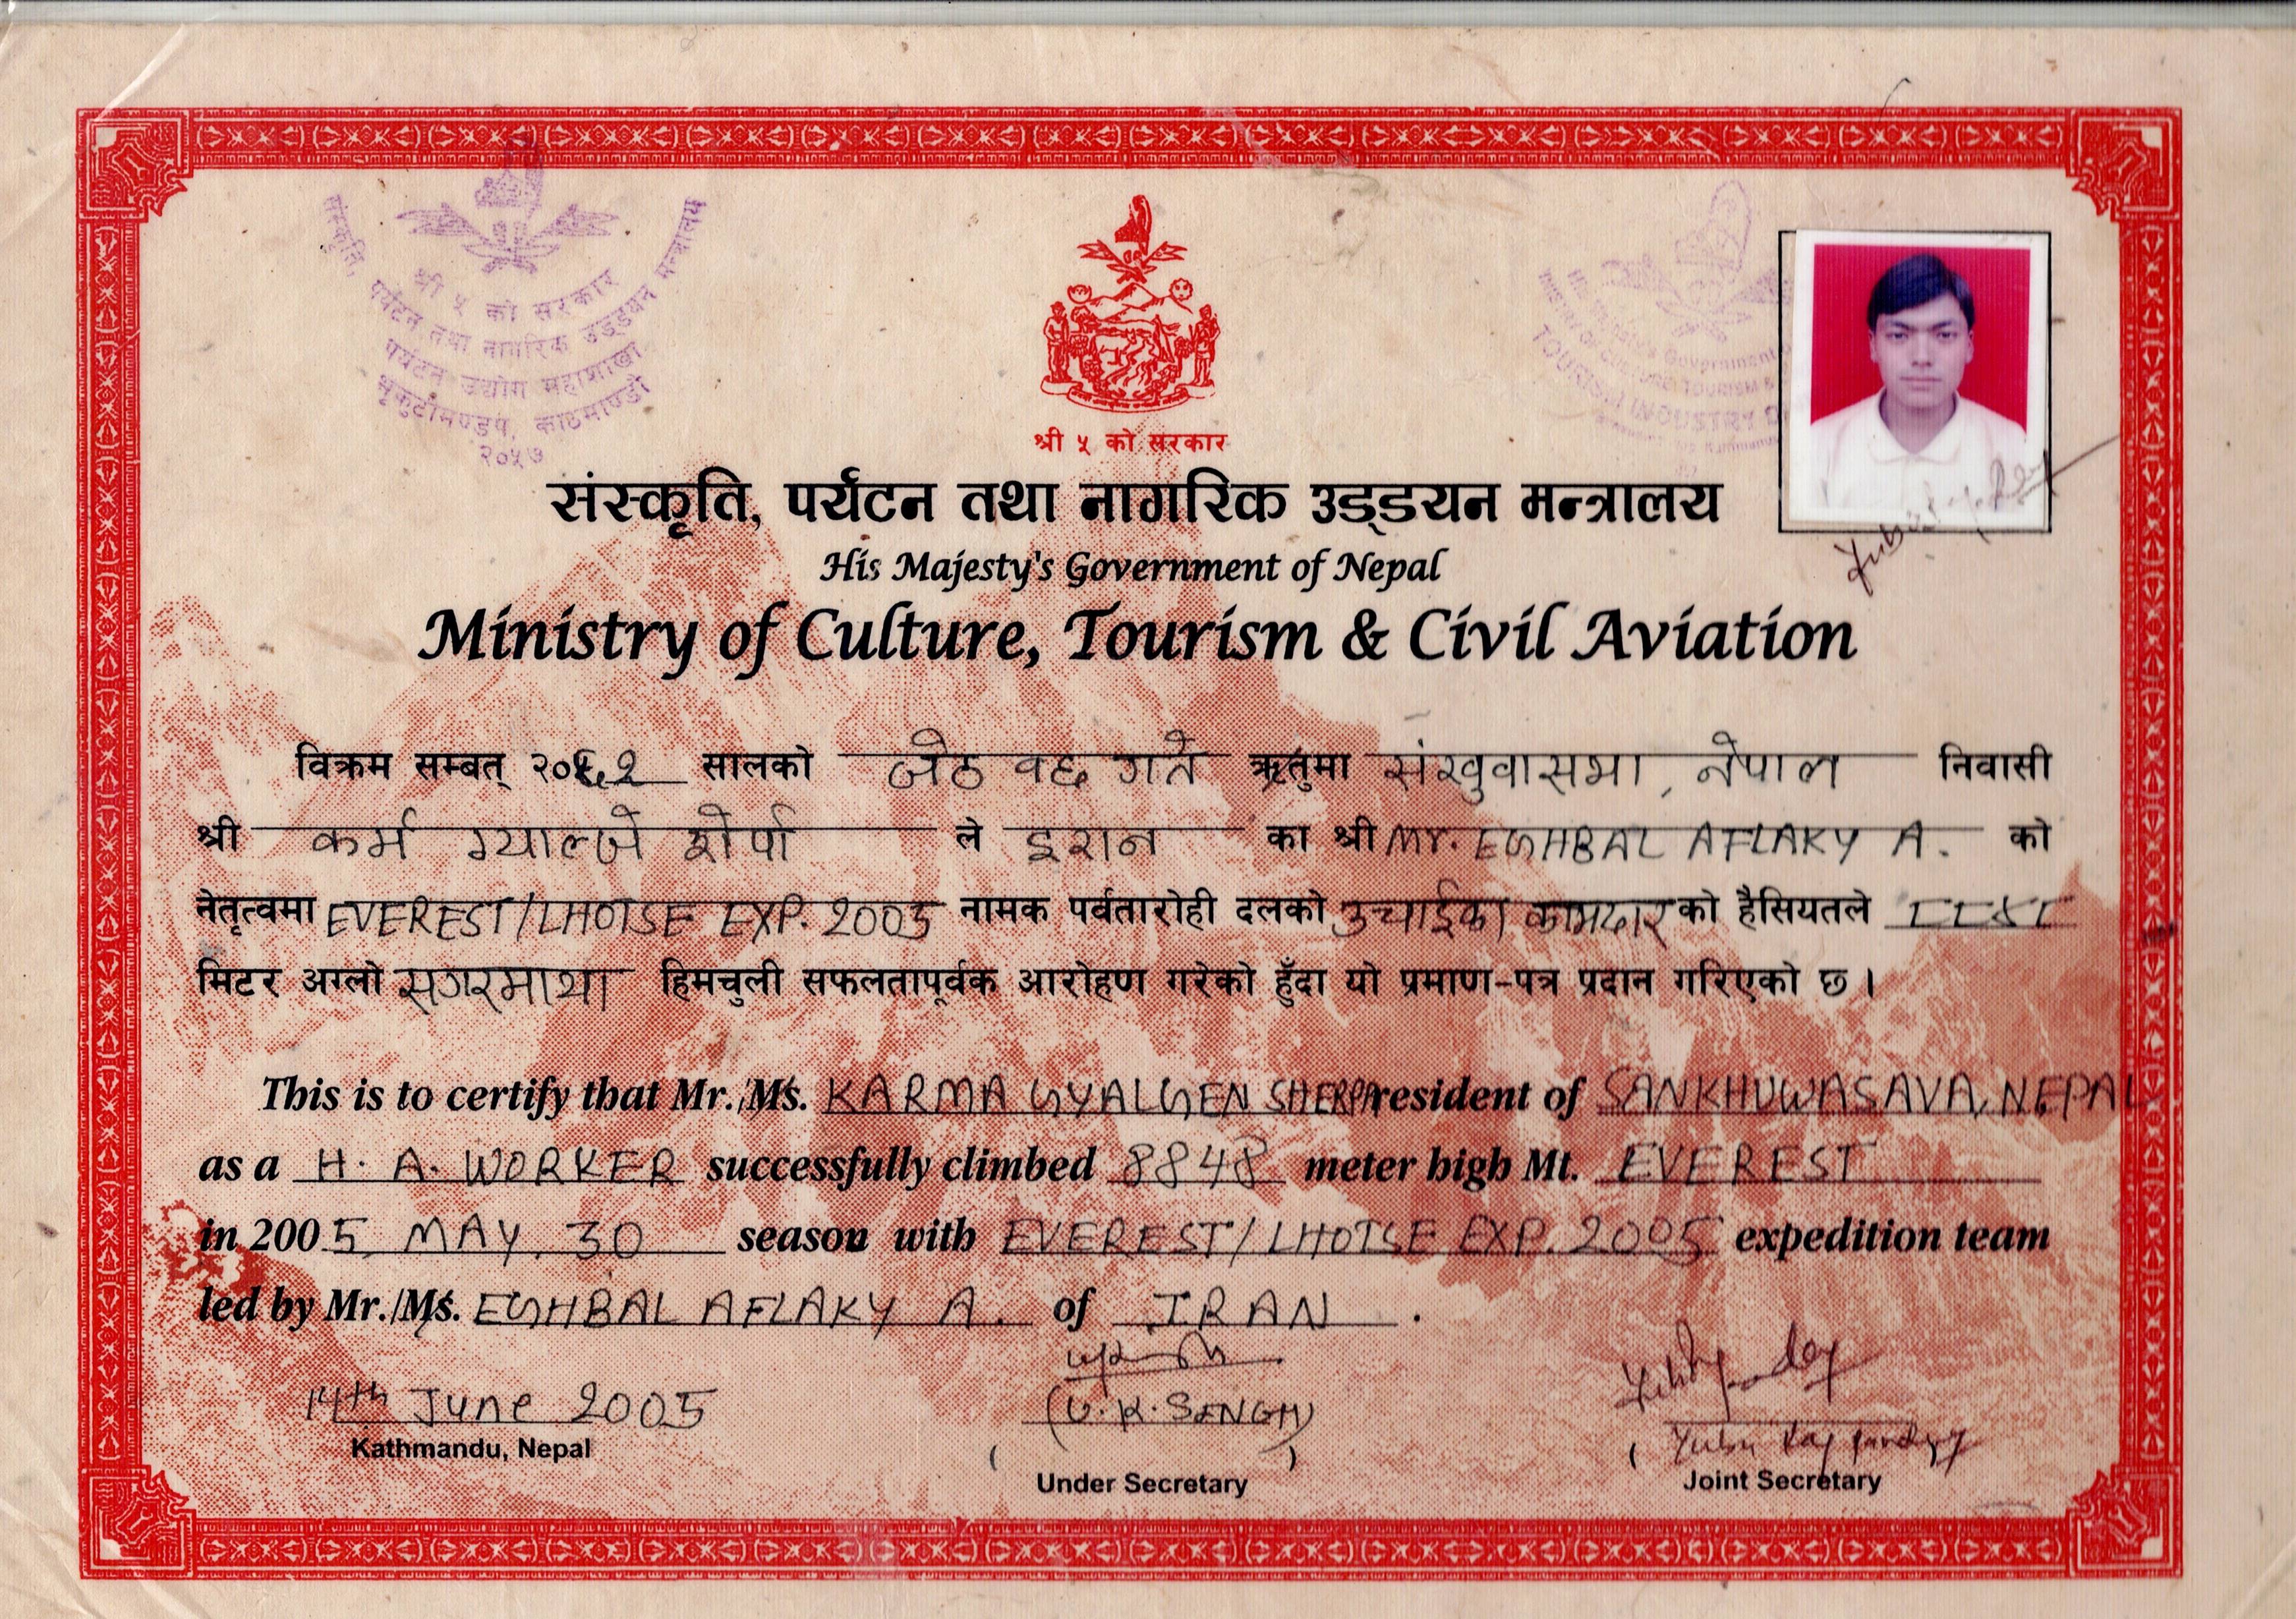 संस्कृति, पर्यटन तथा नागरिक उड्डयन मन्त्रालय
श्री ५ को सरकार
पर्यटन उद्योग महाशाखा
भृकुटीमण्डप, काठमाण्डौ
२०५७
श्री ५ को सरकार
TOURISM INDUSTRY
संस्कृति, पर्यटन तथा नागरिक उड्डयन मन्त्रालय
His Majesty's Government of Nepal
Ministry of Culture, Tourism & Civil Aviation
विक्रम सम्बत् २०६२ सालको जेठ १६ गते ऋतुमा संखुवासभा, नेपाल निवासी
श्री कर्म ग्याल्जे शेर्पा ले इरान का श्री Mr. EGHBAL AFLAKY A. को
नेतृत्वमा EVEREST/LHOTSE EXP. 2005 नामक पर्वतारोही दलको उचाईका कामदार को हैसियतले ८८४८
मिटर अग्लो सगरमाथा हिमचुली सफलतापूर्वक आरोहण गरेको हुँदा यो प्रमाण-पत्र प्रदान गरिएको छ ।
This is to certify that Mr./Ms. KARMA GYALGEN SHERPA resident of SANKHUWASAVA, NEPAL
as a H. A. WORKER successfully climbed 8848 meter high Mt. EVEREST
in 2005 MAY. 30 season with EVEREST/LHOTSE EXP. 2005 expedition team
led by Mr./Ms. EGHBAL AFLAKY A. of IRAN .
14th June 2005
Kathmandu, Nepal
(U.K. SINGH)
Under Secretary
Joint Secretary